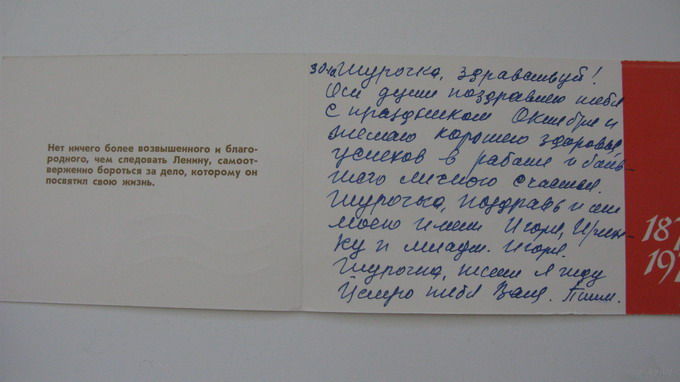 Нет ничего более возвышенного и благо-
родного, чем следовать Ленину, самоот-
верженно бороться за дело, которому он
посвятил свою жизнь.
Шурочка, здравствуй!
От души поздравляю тебя
с праздником Октября и
желаю хорошего здоровья,
успехов в работе и боль-
шого личного счастья.
Шурочка, поздравь и от
моего имени Игоря, Ирин-
ку и Игоря.
Шурочка, я жду
тебя Валя.
187
197